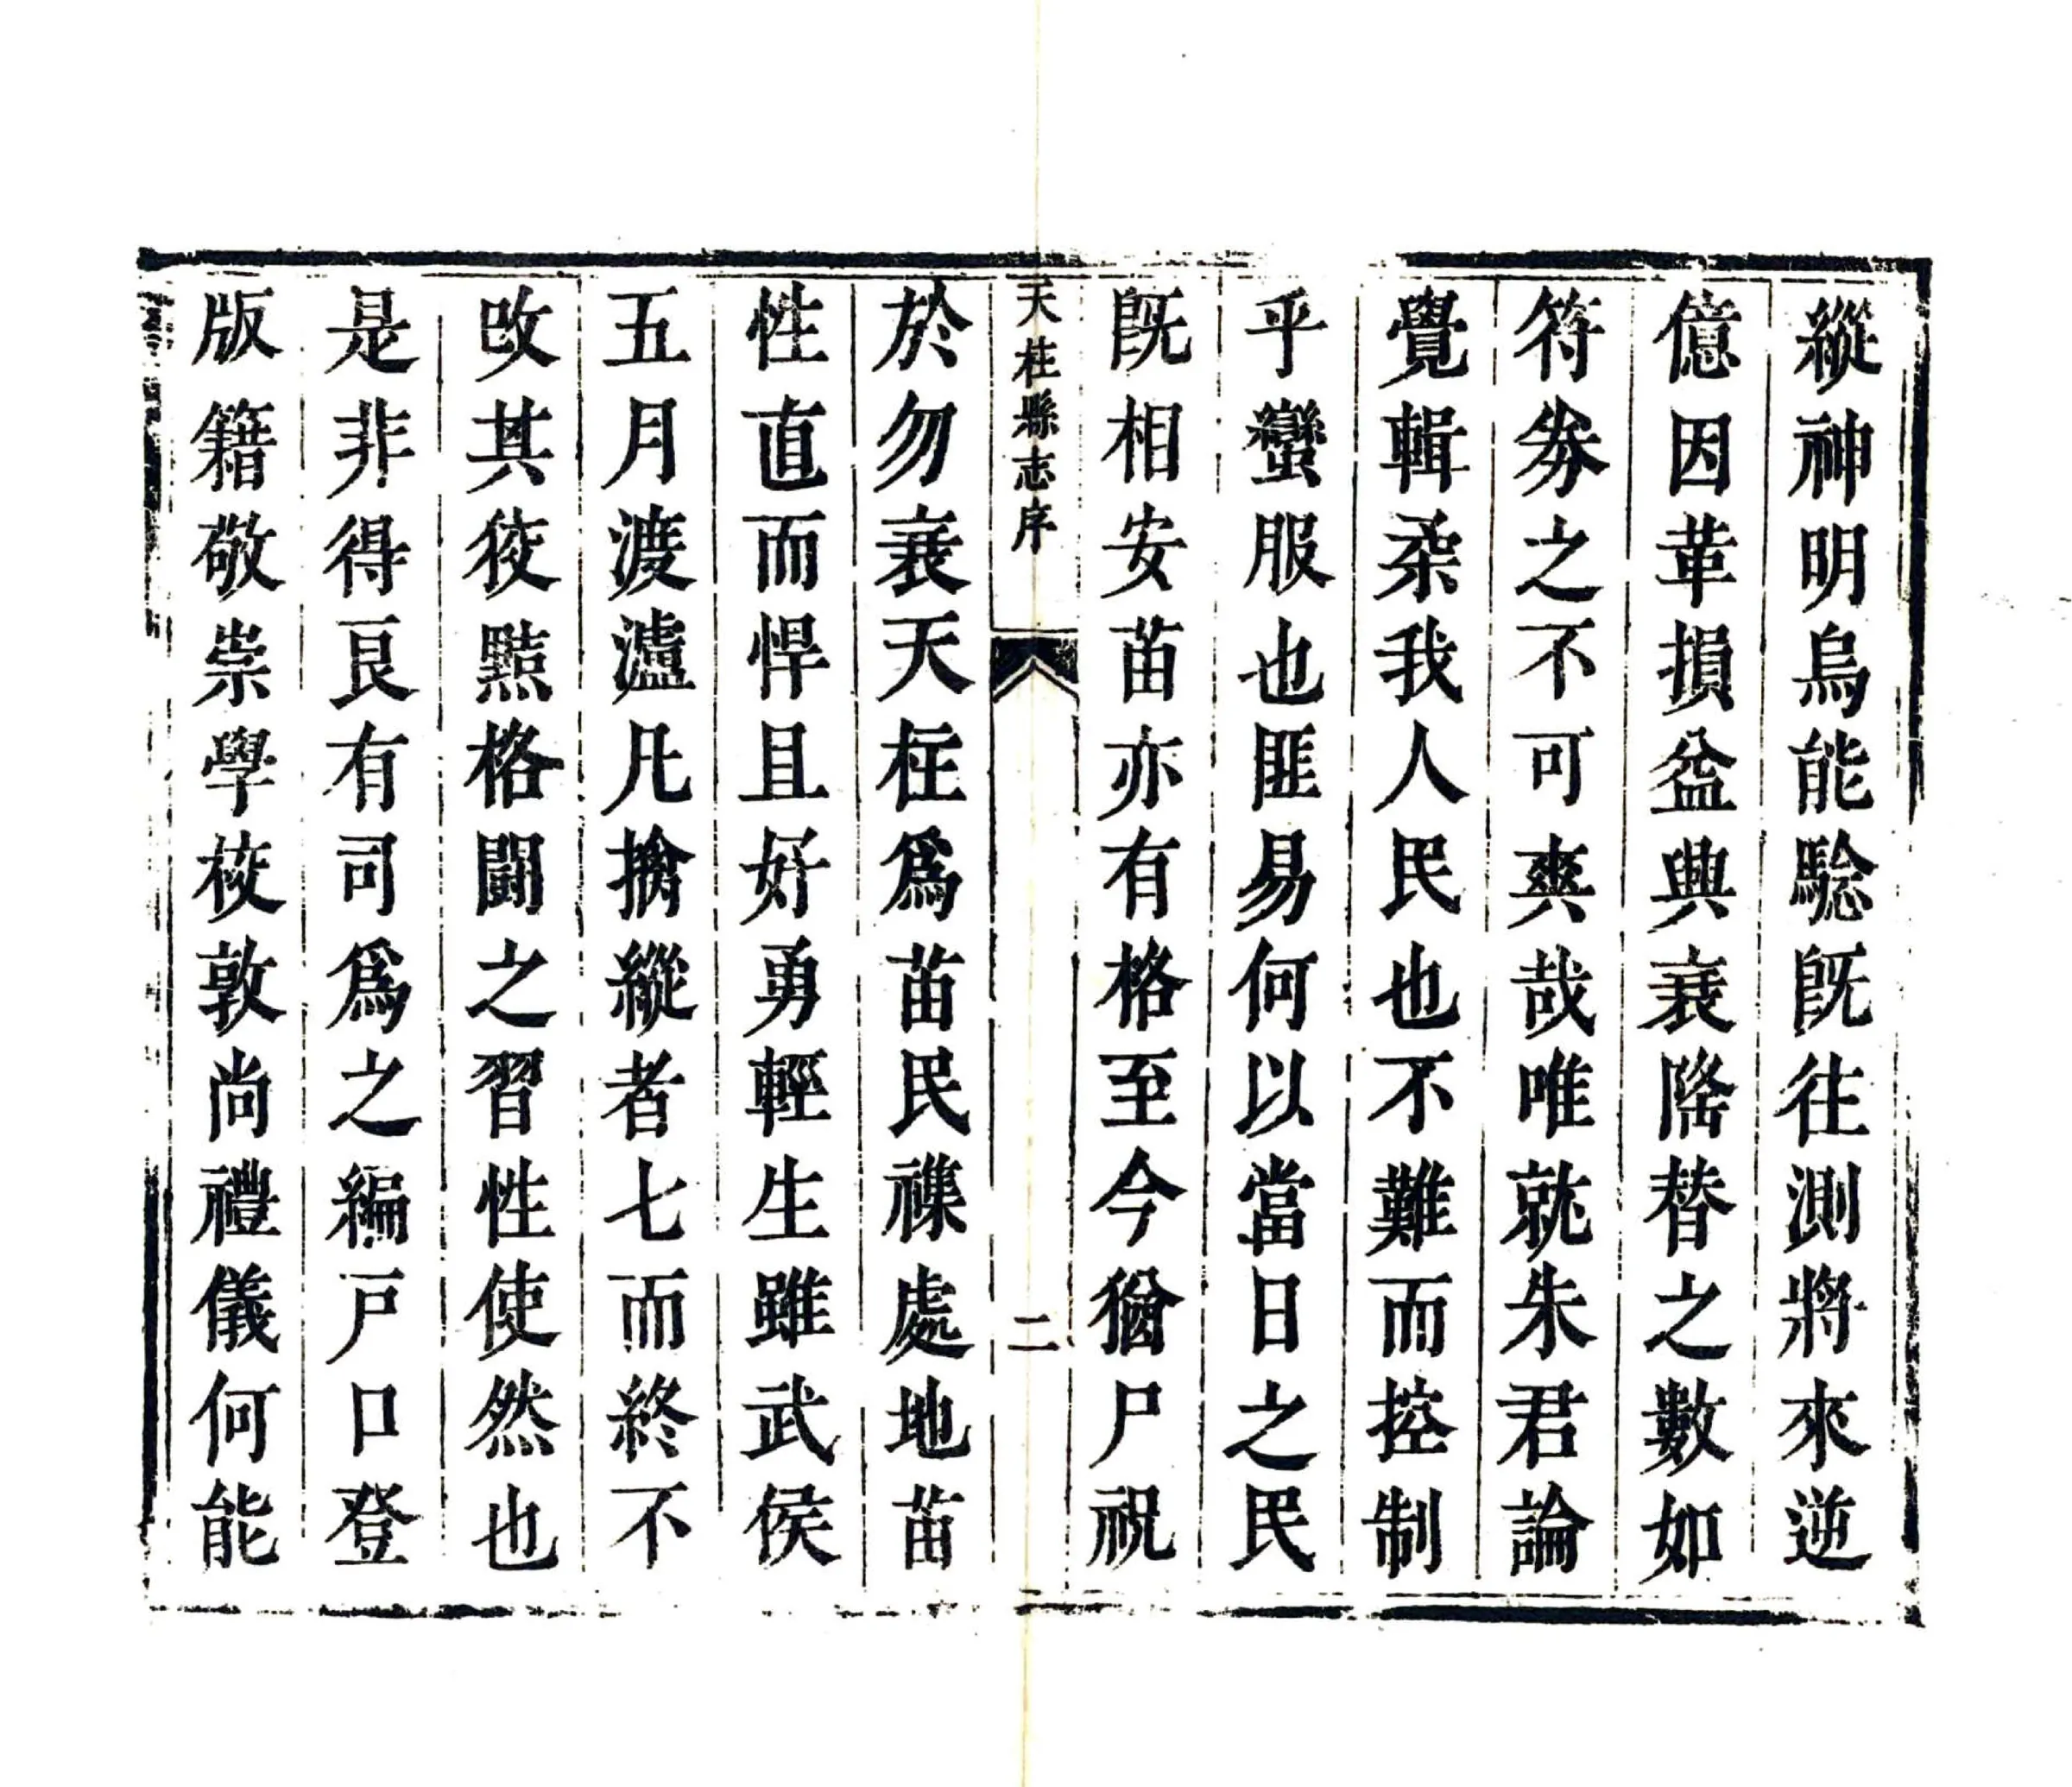 縱神明烏能騐旣往測將來逆
億因革損益興衰隆替之數如
符券之不可爽哉唯就朱君論
覺輯柔我人民也不難而控制
乎蠻服也匪易何以當日之民
旣相安苗亦有格至今猶尸祝
天柱縣志序
二
於勿衰天柱爲苗民襍處地苗
性直而悍且好勇輕生雖武侯
五月渡瀘凡擒縱者七而終不
改其狡黠格鬭之習性使然也
是非得良有司爲之編戸口登
版籍敬崇學校敦尚禮儀何能